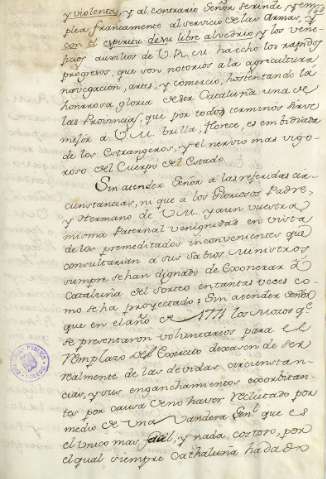 y violentos, y al contrario Señor se rinde, y em
plea francamente al servicio de las Armas, y
con el espiritu de su libre alvedrio y los bene
ficos auxilios de V. R. M. ha echo los rapidos
progresos, que son notorios a la agricultura
navegacion, artes, y comercio, hostentando la
honrrosa gloria de ser Cataluña una de
las Provincias, que por todos caminos sirve
mejor a V. M. brilla, florece, es embidiada
de los Estrangeros, y el nervio mas vigo
roso del Cuerpo del Estado.
Sin atender Señor a las referidas cir
cunstancias, ni que a los Gloriosos Padre,
y Hermano de V. M. y aun vuestra
misma Paternal venignidad en vista
de los premeditados inconvenientes que
consultarian a sus Sabios Ministros
siempre se han dignado de Exonerar a
Cataluña del Sorteo en tantas veces co
mo se ha proyectado; Sin atender Señor
que en el año de 1771 los Mozos qe.
se presentaron voluntarios para el
Remplazo del Exercito dexaron de ser
realmente de las devidas circunstan
cias, y sus enganchamientos exorbitan
tes por causa de no haver reclutado por
medio de una Vandera Gen.l que es
el unico mas facil, y nada costoso, por
el qual siempre Cathaluña ha dado